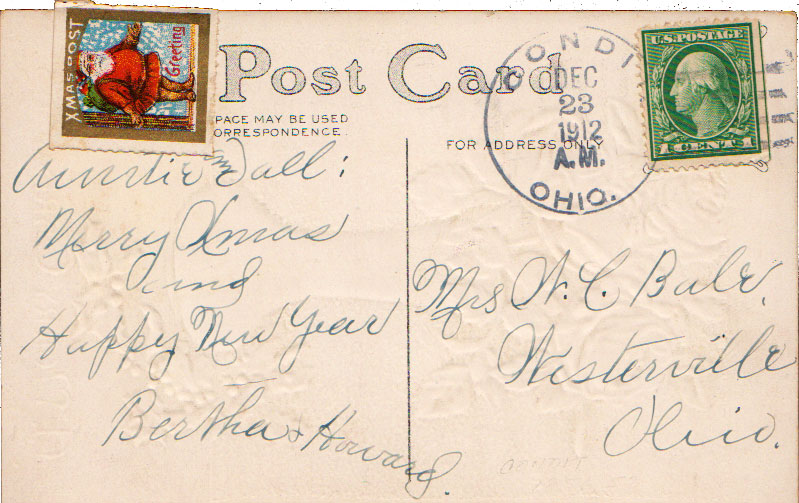 XMAS POST
Greeting
Post Card
PACE MAY BE USED
ORRESPONDENCE.
FOR ADDRESS ONLY
CONDI
DEC
23
1912
A.M.
OHIO.
U.S. POSTAGE
1 CENT 1
Auntie and all:
Merry Xmas
and
Happy New Year
Bertha & Howard.
Mrs W. C. Bale,
Westerville
Ohio.